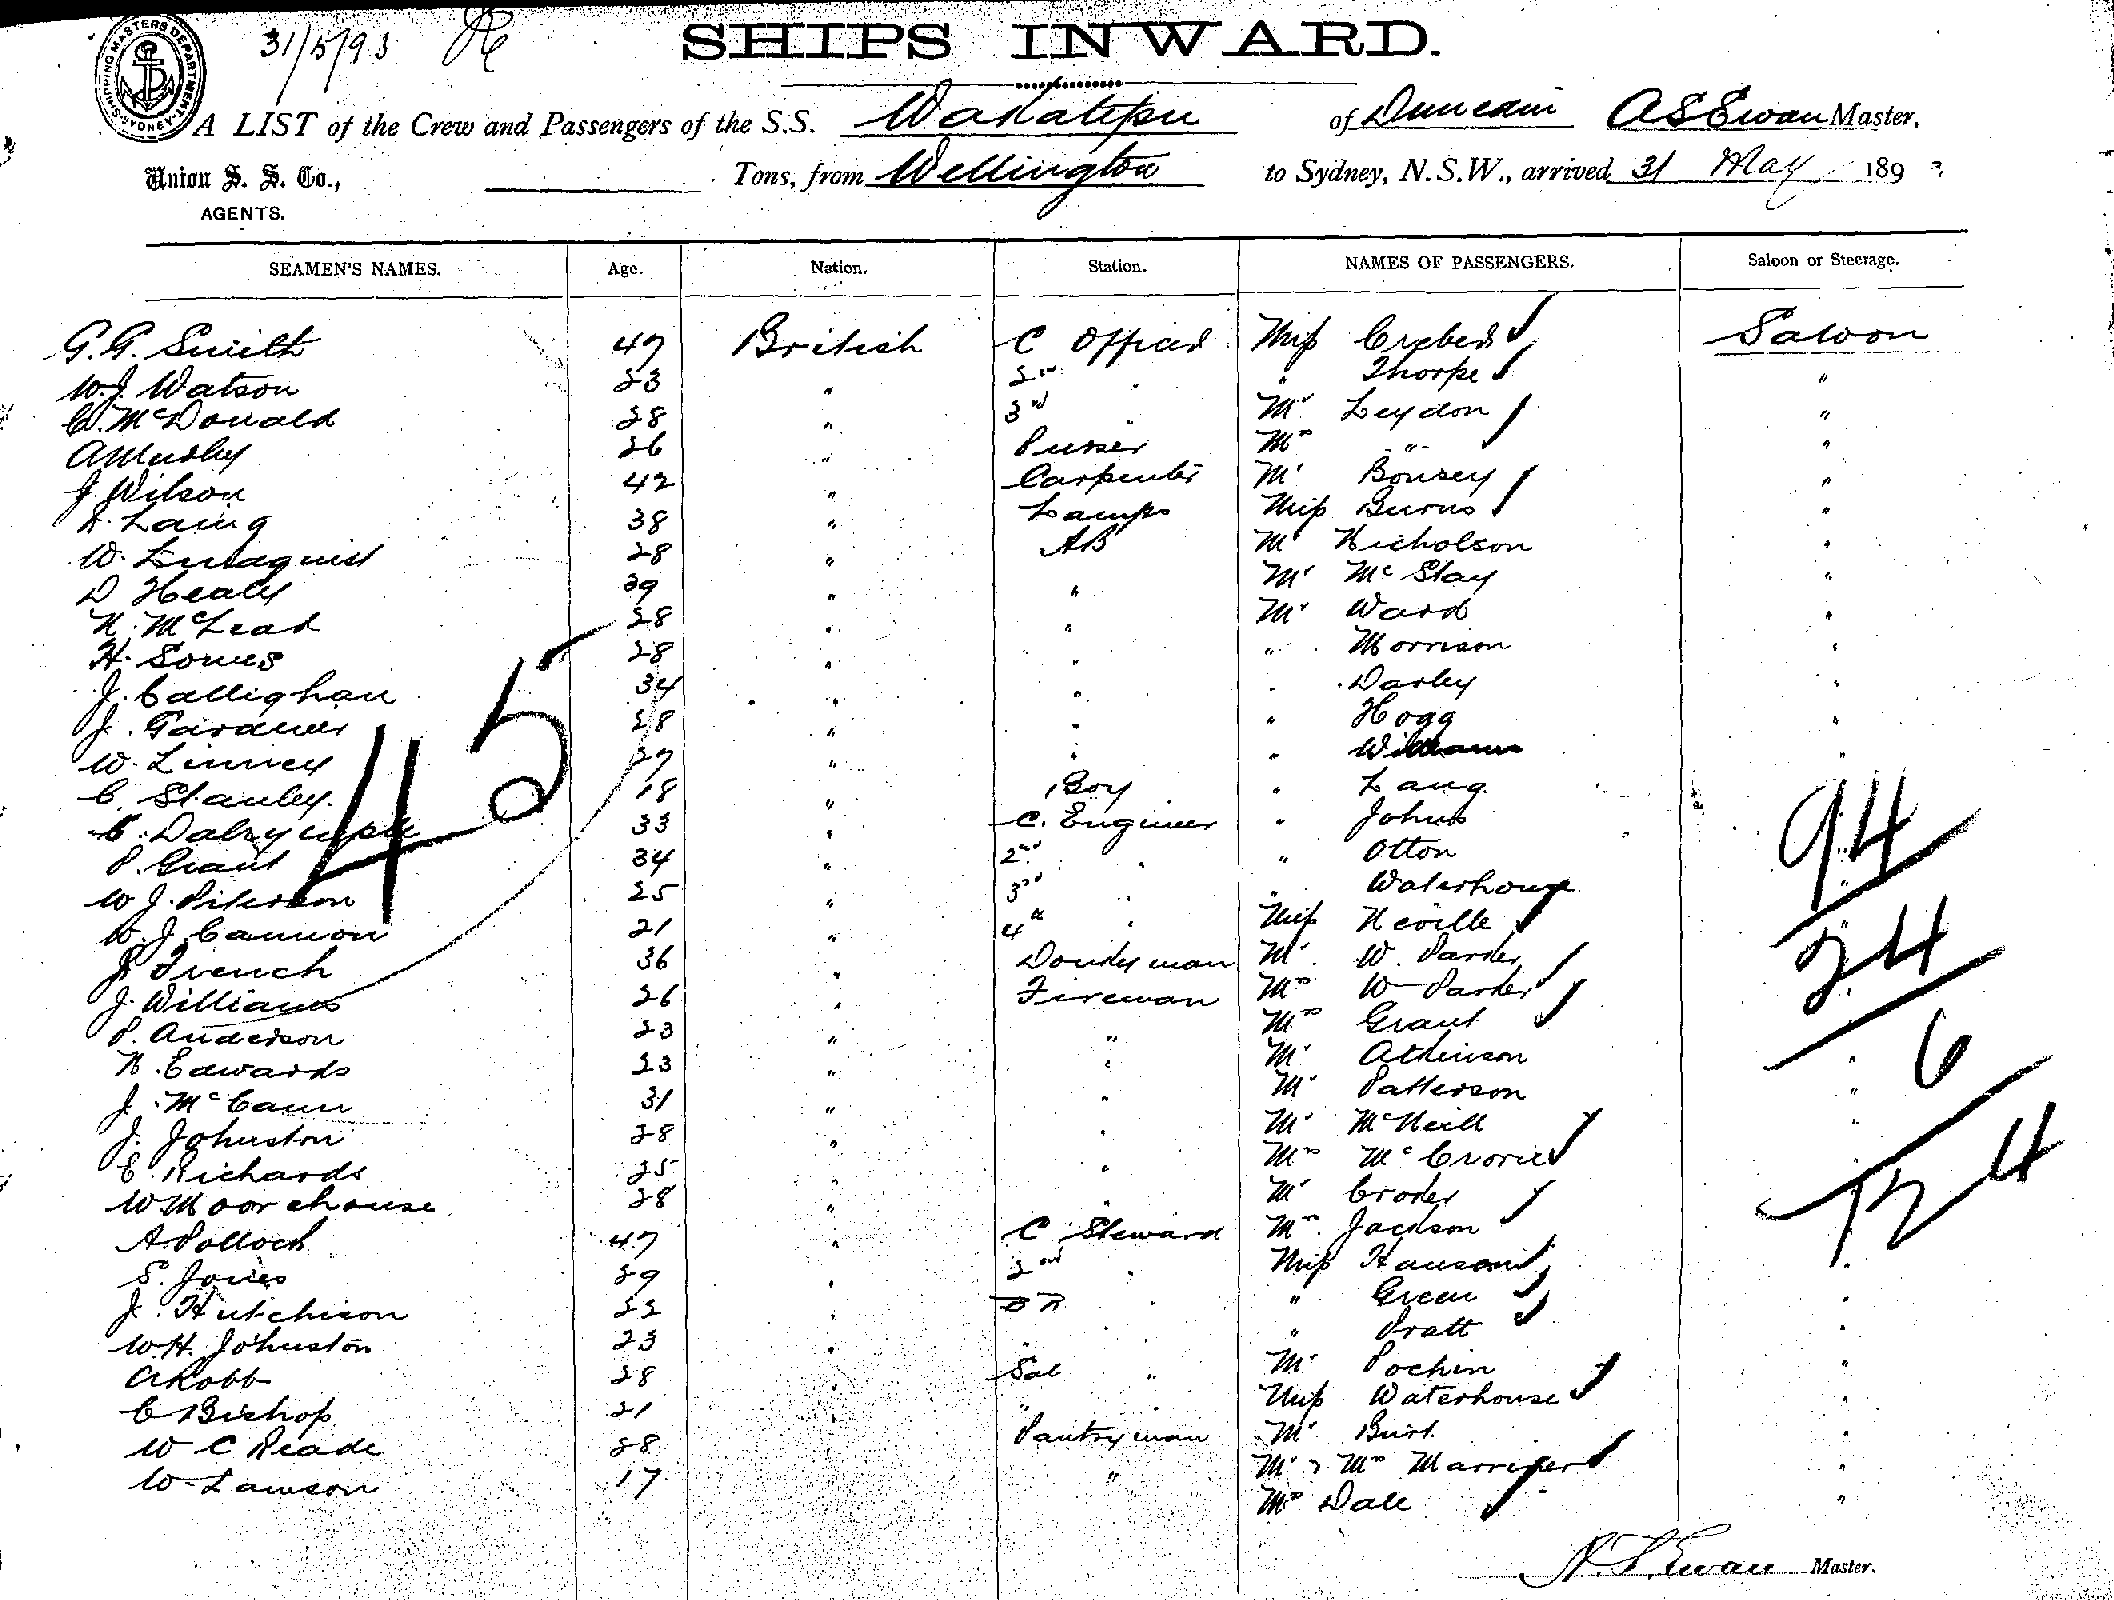 SHIPPING MASTERS DEPARTMENT SYDNEY
31/5/93
SHIPS INWARD.
A LIST of the Crew and Passengers of the S.S. Wakatipu of Dunedin A S Ewan Master,
Union S. S. Co., AGENTS. Tons, from Wellington to Sydney, N.S.W., arrived 31 May 1893
SEAMEN'S NAMES. Age. Nation. Station. NAMES OF PASSENGERS. Saloon or Steerage.
G. G. Smith 47 British C Officer Miss Saloon
W. J. Watson 23 " 2nd " " Thorpe "
C. McDonald 28 " 3rd " Mr Leydon "
A 26 " Purser Mrs " "
J Wilson 42 " Carpenter Mr Bousey "
Laing 38 " Lamps Miss Burns "
W. Lindquist 28 " AB Mr Nicholson "
D Healy 39 " " Mr McStay "
N. McLeod 28 " " Mr Ward "
H. Somes 28 " " " Morrison "
J. Callighan 34 " " " Darley "
J. Gardner 28 " " " Hogg "
W. Linney 27 " " " Williams "
C. Stanley 18 " Boy " Lang
C. Dalrymple 33 " C. Engineer " Johns
P. Grant 34 " 2nd " " Otton
W J. Peterson 25 " 3rd " " Waterhouse
W. J. Cannon 21 " 4th " Miss Neville
J French 36 " Donkeyman Mr W. Parker
J. Williams 26 " Fireman Mrs W Parker
P. Anderson 23 " " Mrs Grant
N. Edwards 23 " " Mr Atkinson "
J. McCann 31 " " Mr Patterson "
J. Johnston 28 " " Mr McNeill "
E. Richards 25 " " Mrs McCrorie "
W Moorehouse 28 " " Mr "
A Pollock 47 " C Steward Mrs Jackson "
S. Jones 29 " 2nd " Miss Hanson "
J. Hutchison 22 " " " Green "
W. H. Johnston 23 " " " Pratt "
A Robb 28 " Sal " Mr Pochin "
C Bishop 21 " " Miss Waterhouse "
W C Reade 28 Pantryman Mr Burt "
W Lawson 17 " Mr & Mrs "
Mrs Dale "
45
94
24
6
124
A. S. Ewan Master.